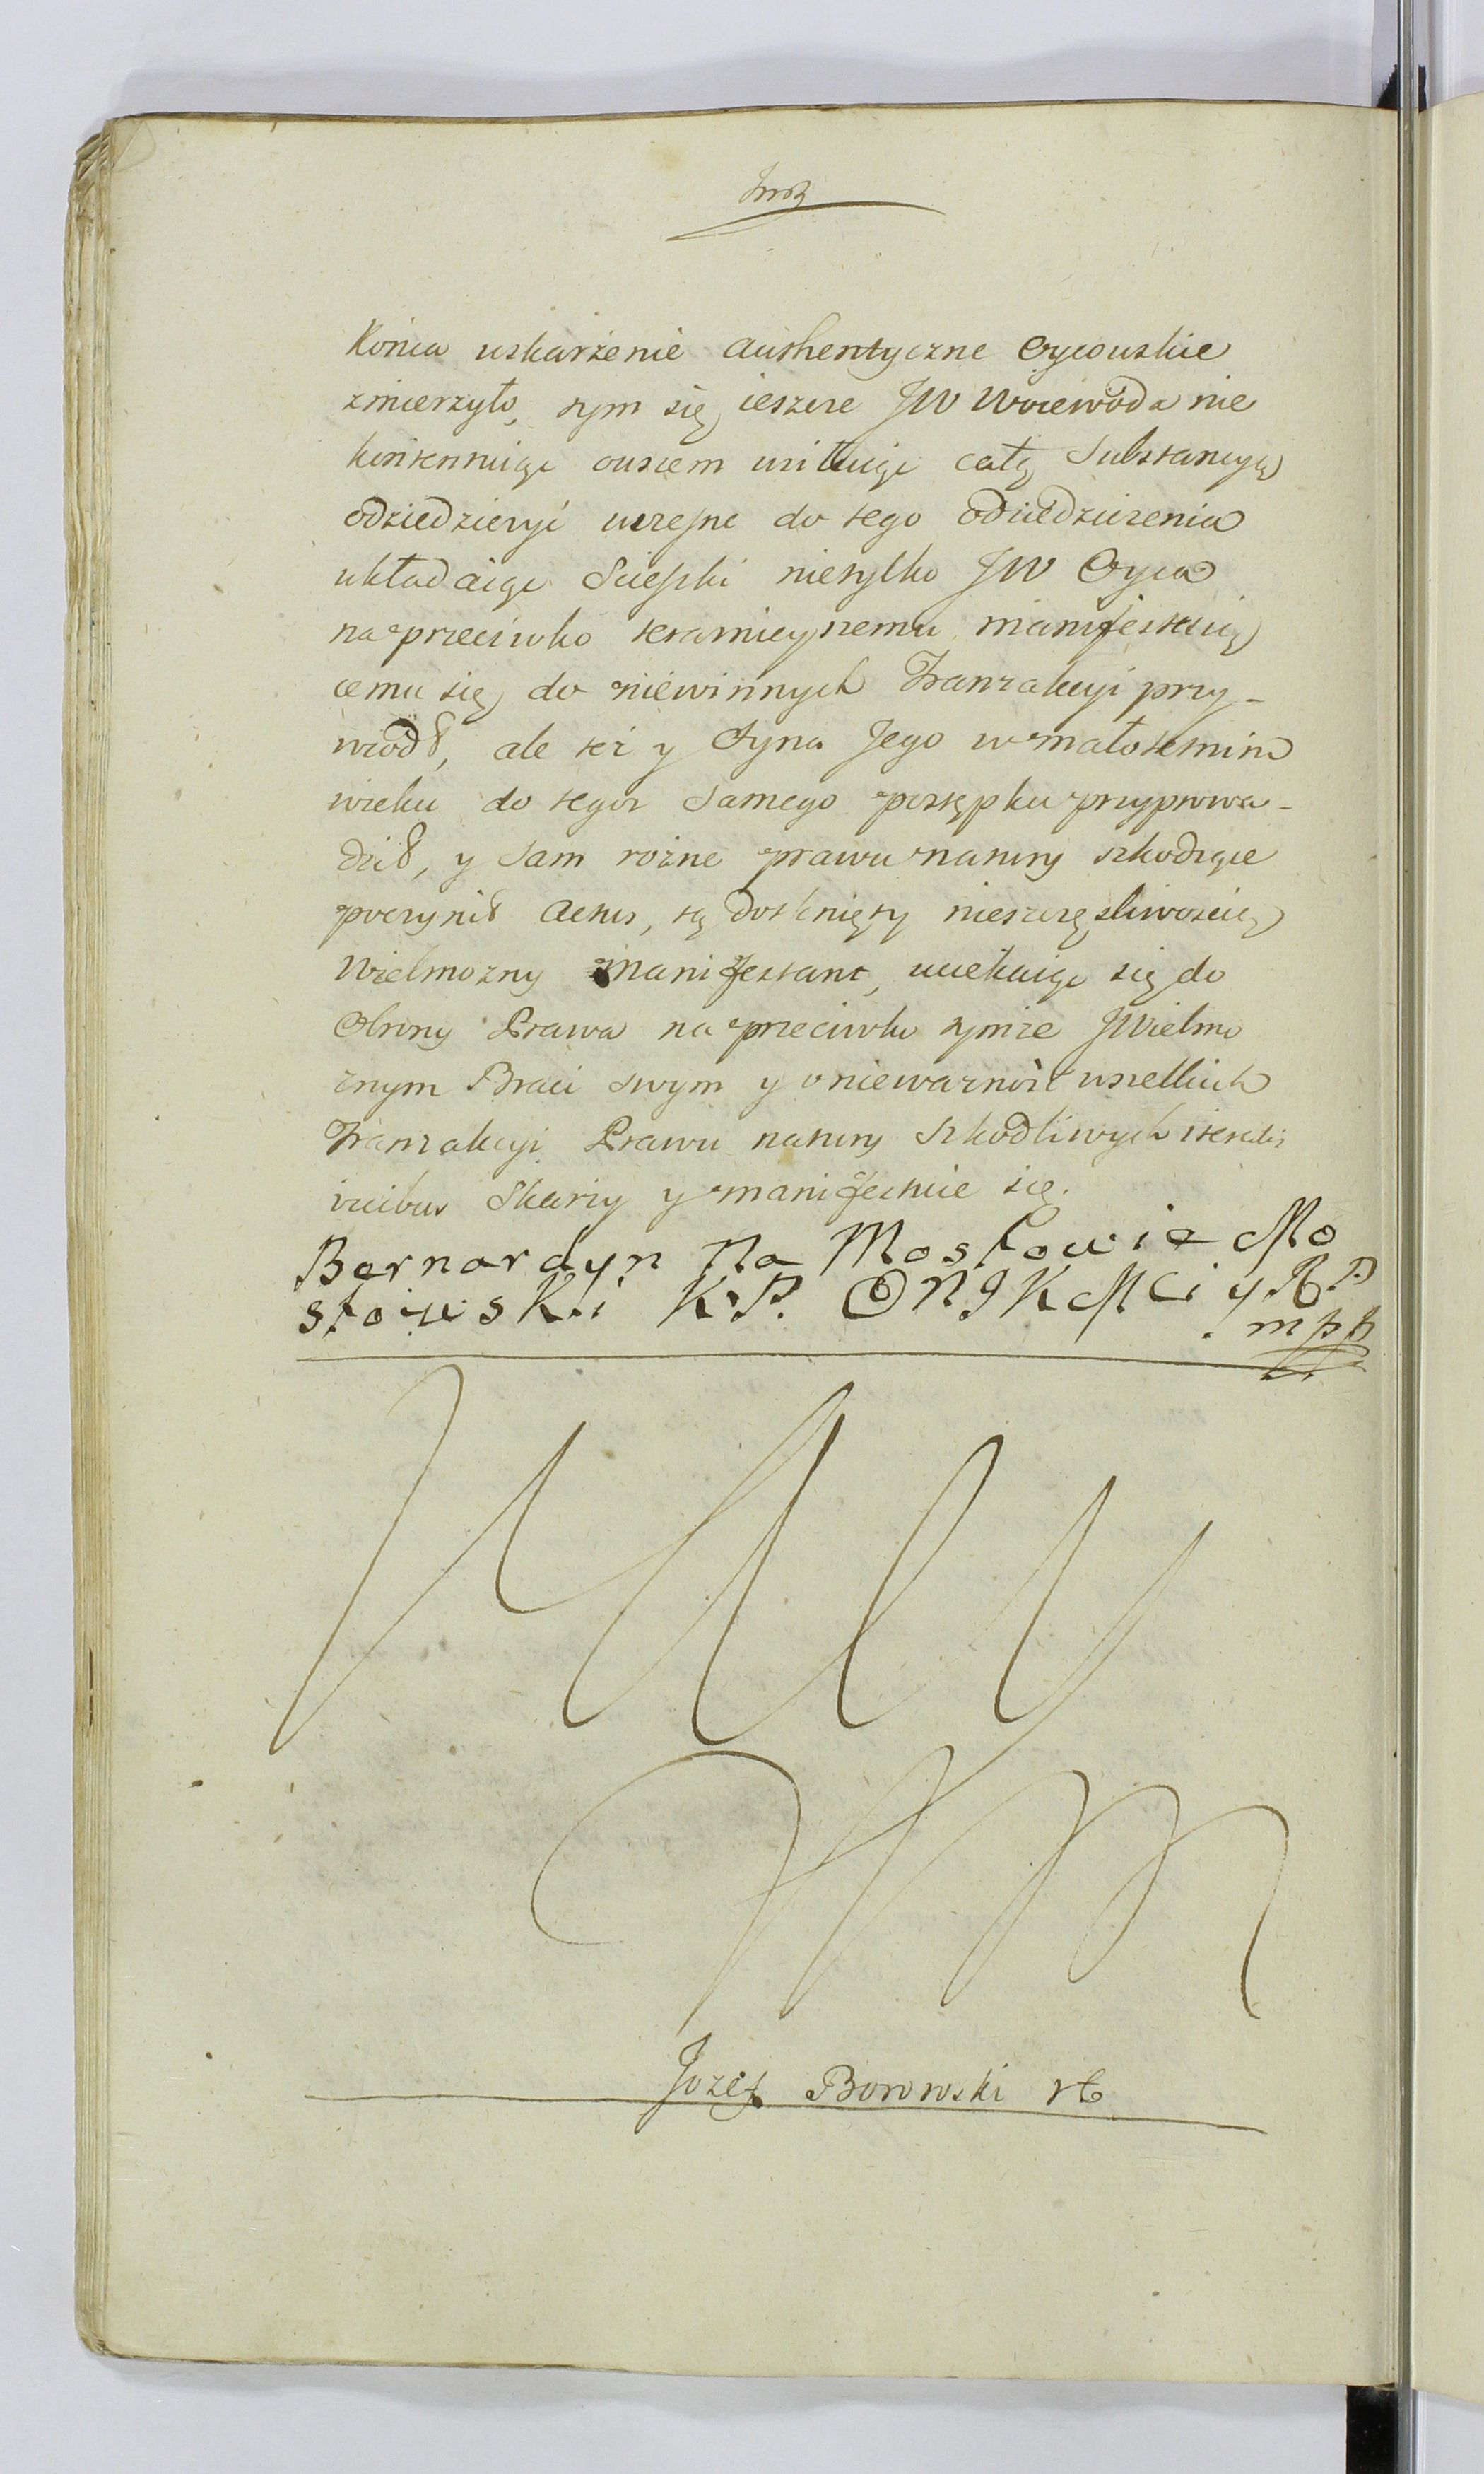 Końca uskarżenie authentyczne Oycowskie
zmierzyło, tym się ieszcze JW Woiewoda nie
kontentuiąc owszem usiłuiąc całą Substancyą
odziedziczyć wczesne do tego odziedziczenia
układaiąc Scieszki nietylko JW Oyca
naprzeciwko teraznieyszemu manifestuią
cemu się do niewinnych Tranzakcyi przy-
wiodł, ale też y Syna Jego w małoletnim
wieku do tegoż Samego postępku przyprowa-
dził, y Sam rożne prawu natury szkodzące
poczynił Actus, tą dotknięty nieszczęsliwoscią
Wielmozny Manifestant, uciekaiąc się do
Obrony Prawa naprzeciwko tymże JWielmo
żnym Braci Swym y o niewazność wszelkich
Tranzakcyi Prawu natury Szkodliwych iteratis
vicibus Skarży y manifestuie się.
Bernardyn Na Mostowie Mo
stowski K.P. O N J K Mci y R P
mpp
Jozef Borowski